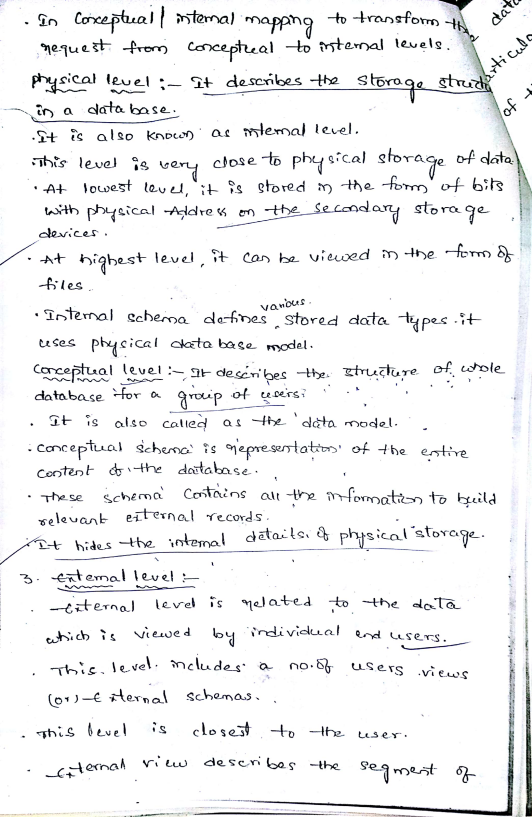 . In Conceptual / internal mapping to transform the
request from conceptual to internal levels.
physical level :- It describes the storage struct
in a database.
. It is also known as internal level.
. This level is very close to physical storage of data
. At lowest level, it is stored in the form of bits
with physical Address on the secondary storage
devices.
. At highest level, it can be viewed in the form of
files.
. Internal schema defines various stored data types. it
uses physical data base model.
Conceptual level :- It describes the structure of whole
database for a group of users.
. It is also called as the data model.
. conceptual schema is representation of the entire
content of the database.
. These schema contains all the information to build
relevant external records.
. It hides the internal details of physical storage.
3. External level :-
. External level is related to the data
which is viewed by individual end users.
. This level includes a no. of users views
(or) External schemas.
. This level is closest to the user.
. External view describes the segment of
data
of